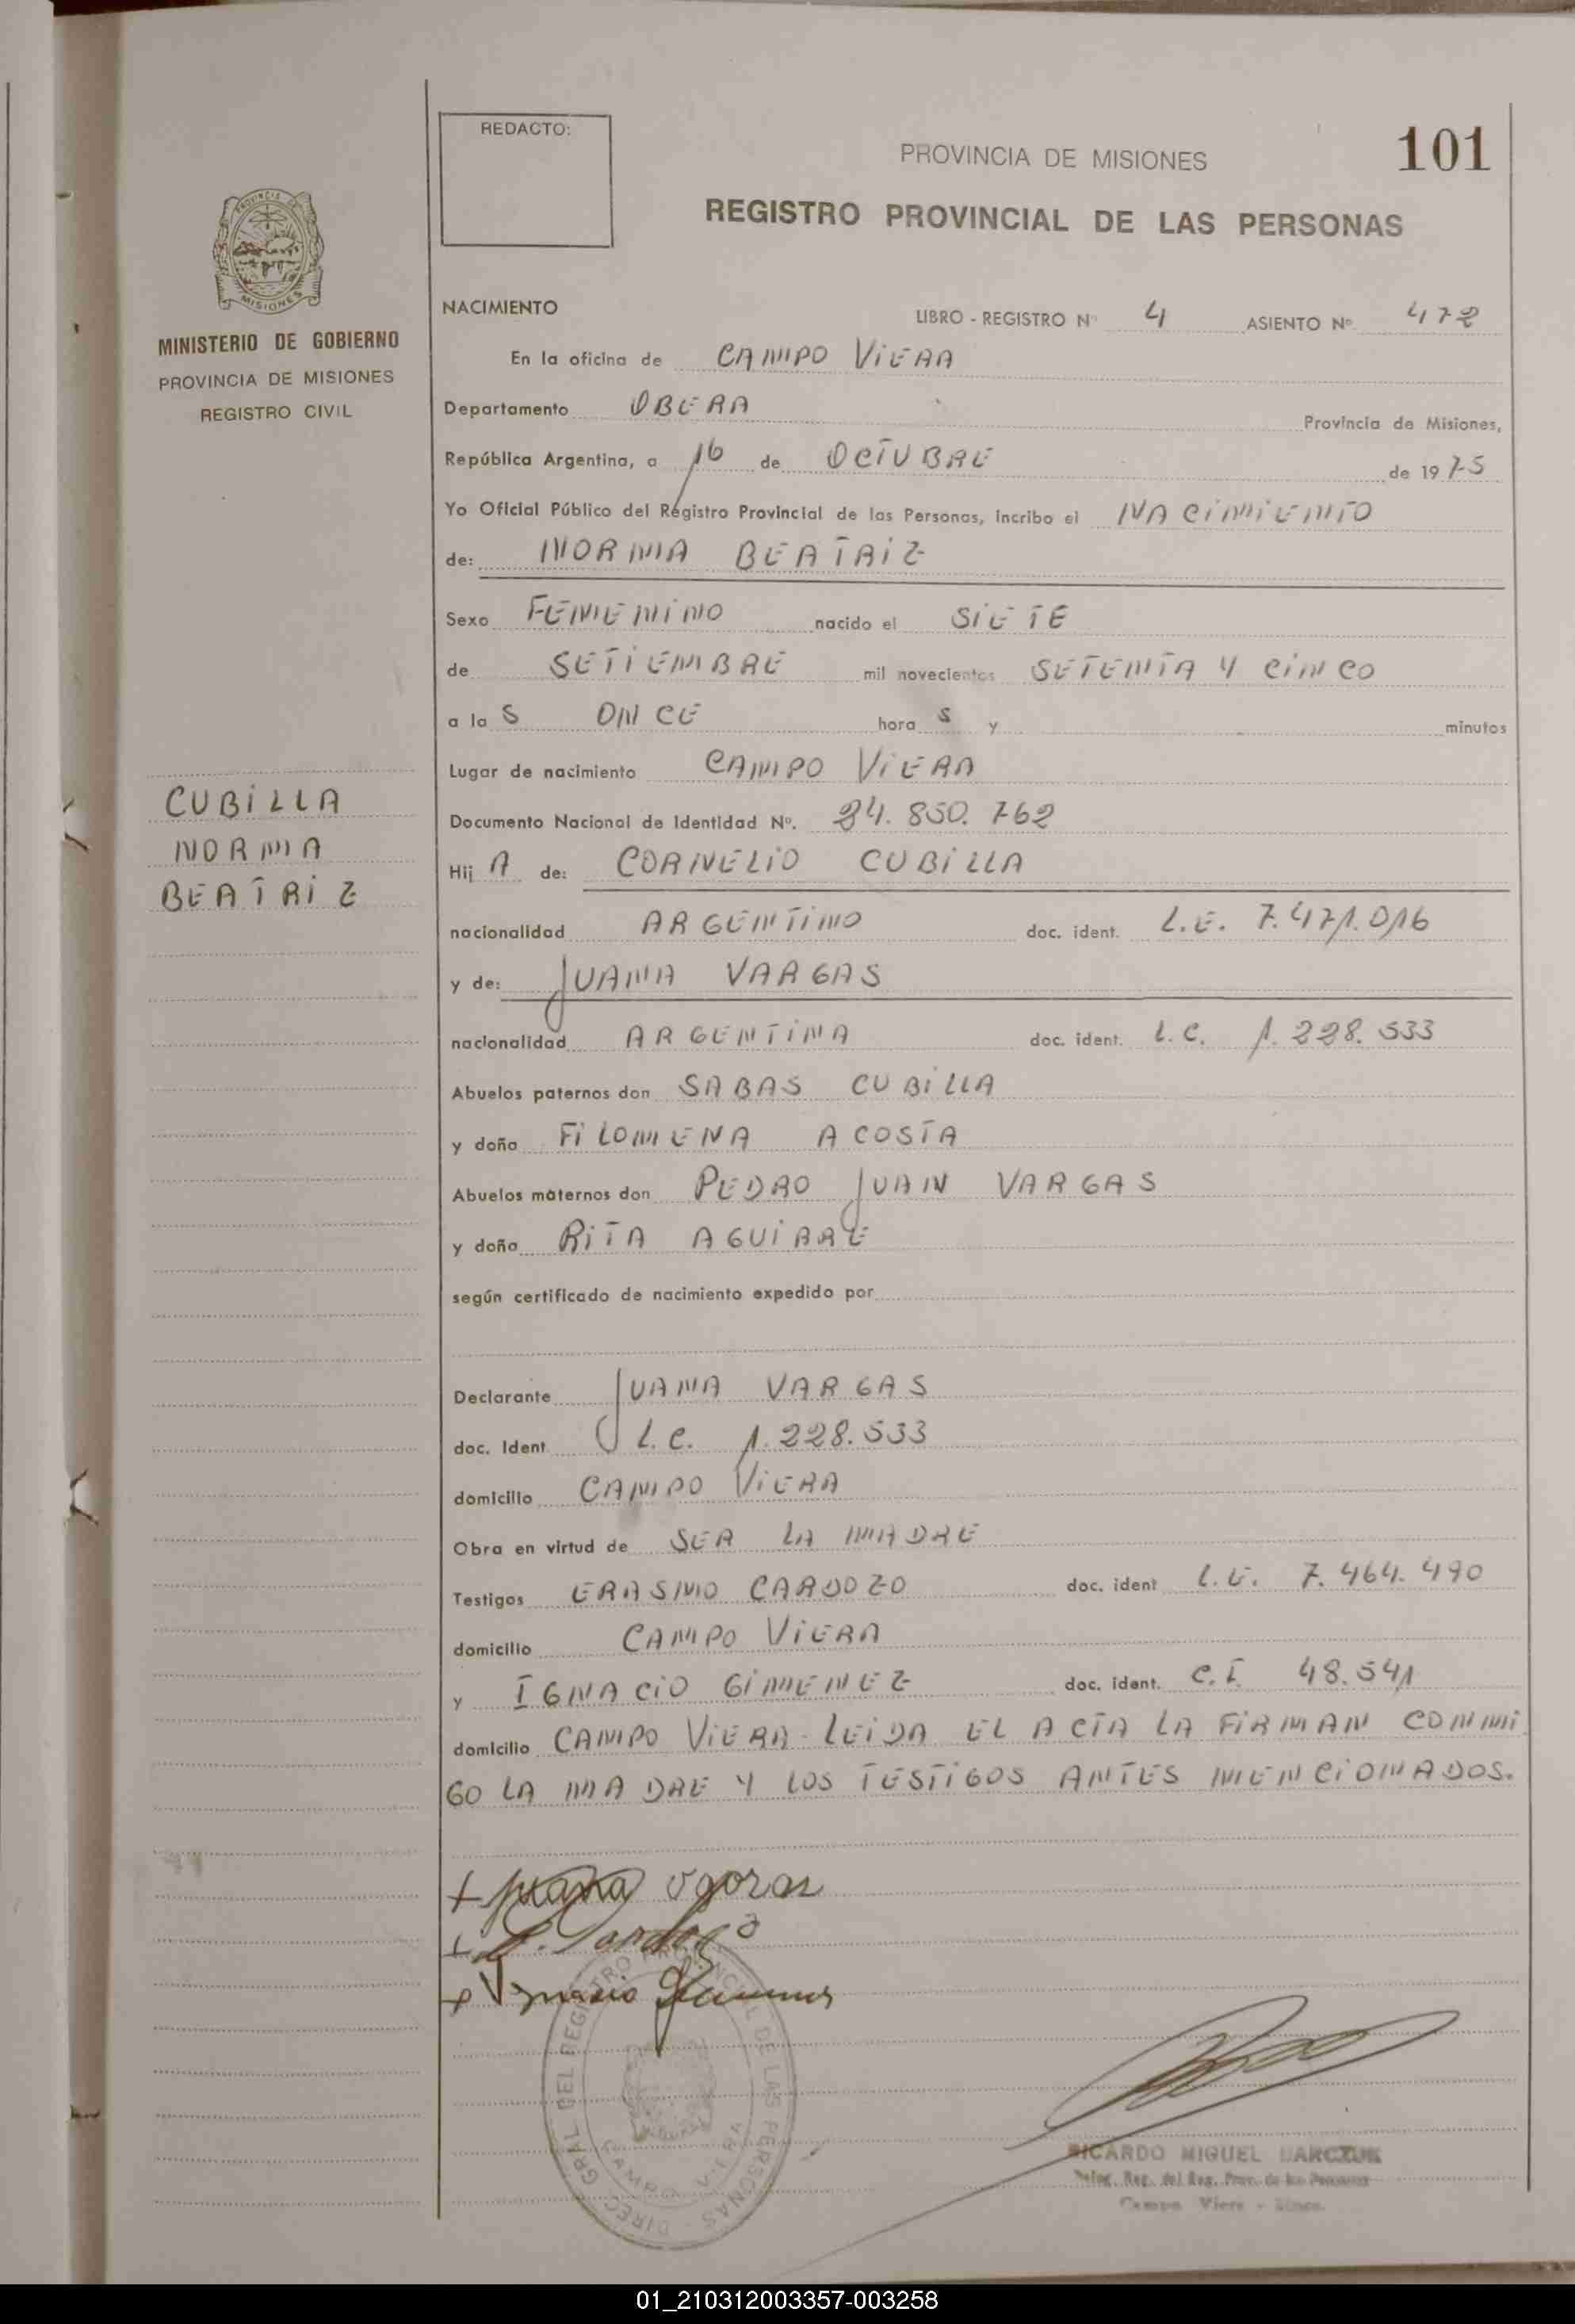 REDACTO:
PROVINCIA DE MISIONES
101
REGISTRO PROVINCIAL DE LAS PERSONAS
PROVINCIA DE
MISIONES
MINISTERIO DE GOBIERNO
PROVINCIA DE MISIONES
REGISTRO CIVIL
NACIMIENTO
LIBRO - REGISTRO Nº 4 ASIENTO Nº 472
En la oficina de CAMPO VIERA
Departamento OBERA Provincia de Misiones,
República Argentina, a 16 de OCTUBRE de 1975
Yo Oficial Público del Régistro Provincial de las Personas, incribo el NACIMIENTO
de: NORMA BEATRIZ
Sexo FEMENINO nacido el SIETE
de SETIEMBRE mil novecientos SETENTA Y CINCO
a la S ONCE hora s y minutos
Lugar de nacimiento CAMPO VIERA
CUBILLA
NORMA
BEATRIZ
Documento Nacional de Identidad Nº. 24.850.762
Hij A de: CORNELIO CUBILLA
nacionalidad ARGENTINO doc. ident. L.E. 7.471.016
y de: JUANA VARGAS
nacionalidad ARGENTINA doc. ident. L.C. 1.228.533
Abuelos paternos don SABAS CUBILLA
y doña FILOMENA ACOSTA
Abuelos maternos don PEDRO JUAN VARGAS
y doña RITA AGUIRRE
según certificado de nacimiento expedido por
Declarante JUANA VARGAS
doc. Ident L.C. 1.228.533
domicilio CAMPO VIERA
Obra en virtud de SER LA MADRE
Testigos ERASMO CARDOZO doc. ident L.E. 7.464.490
domicilio CAMPO VIERA
y IGNACIO GIMENEZ doc. ident. C.I. 48.541
domicilio CAMPO VIERA - LEIDA EL ACTA LA FIRMAN CONMI
GO LA MADRE Y LOS TESTIGOS ANTES MENCIONADOS.
+ juana
+
+ Ignacio
DIREC. GRAL. DEL REGISTRO PROVINCIAL DE LAS PERSONAS
CAMPO VIERA
RICARDO MIGUEL
Deleg. Reg. del Reg. Prov. de las Personas
Campo Viera - Mnes.
01_210312003357-003258